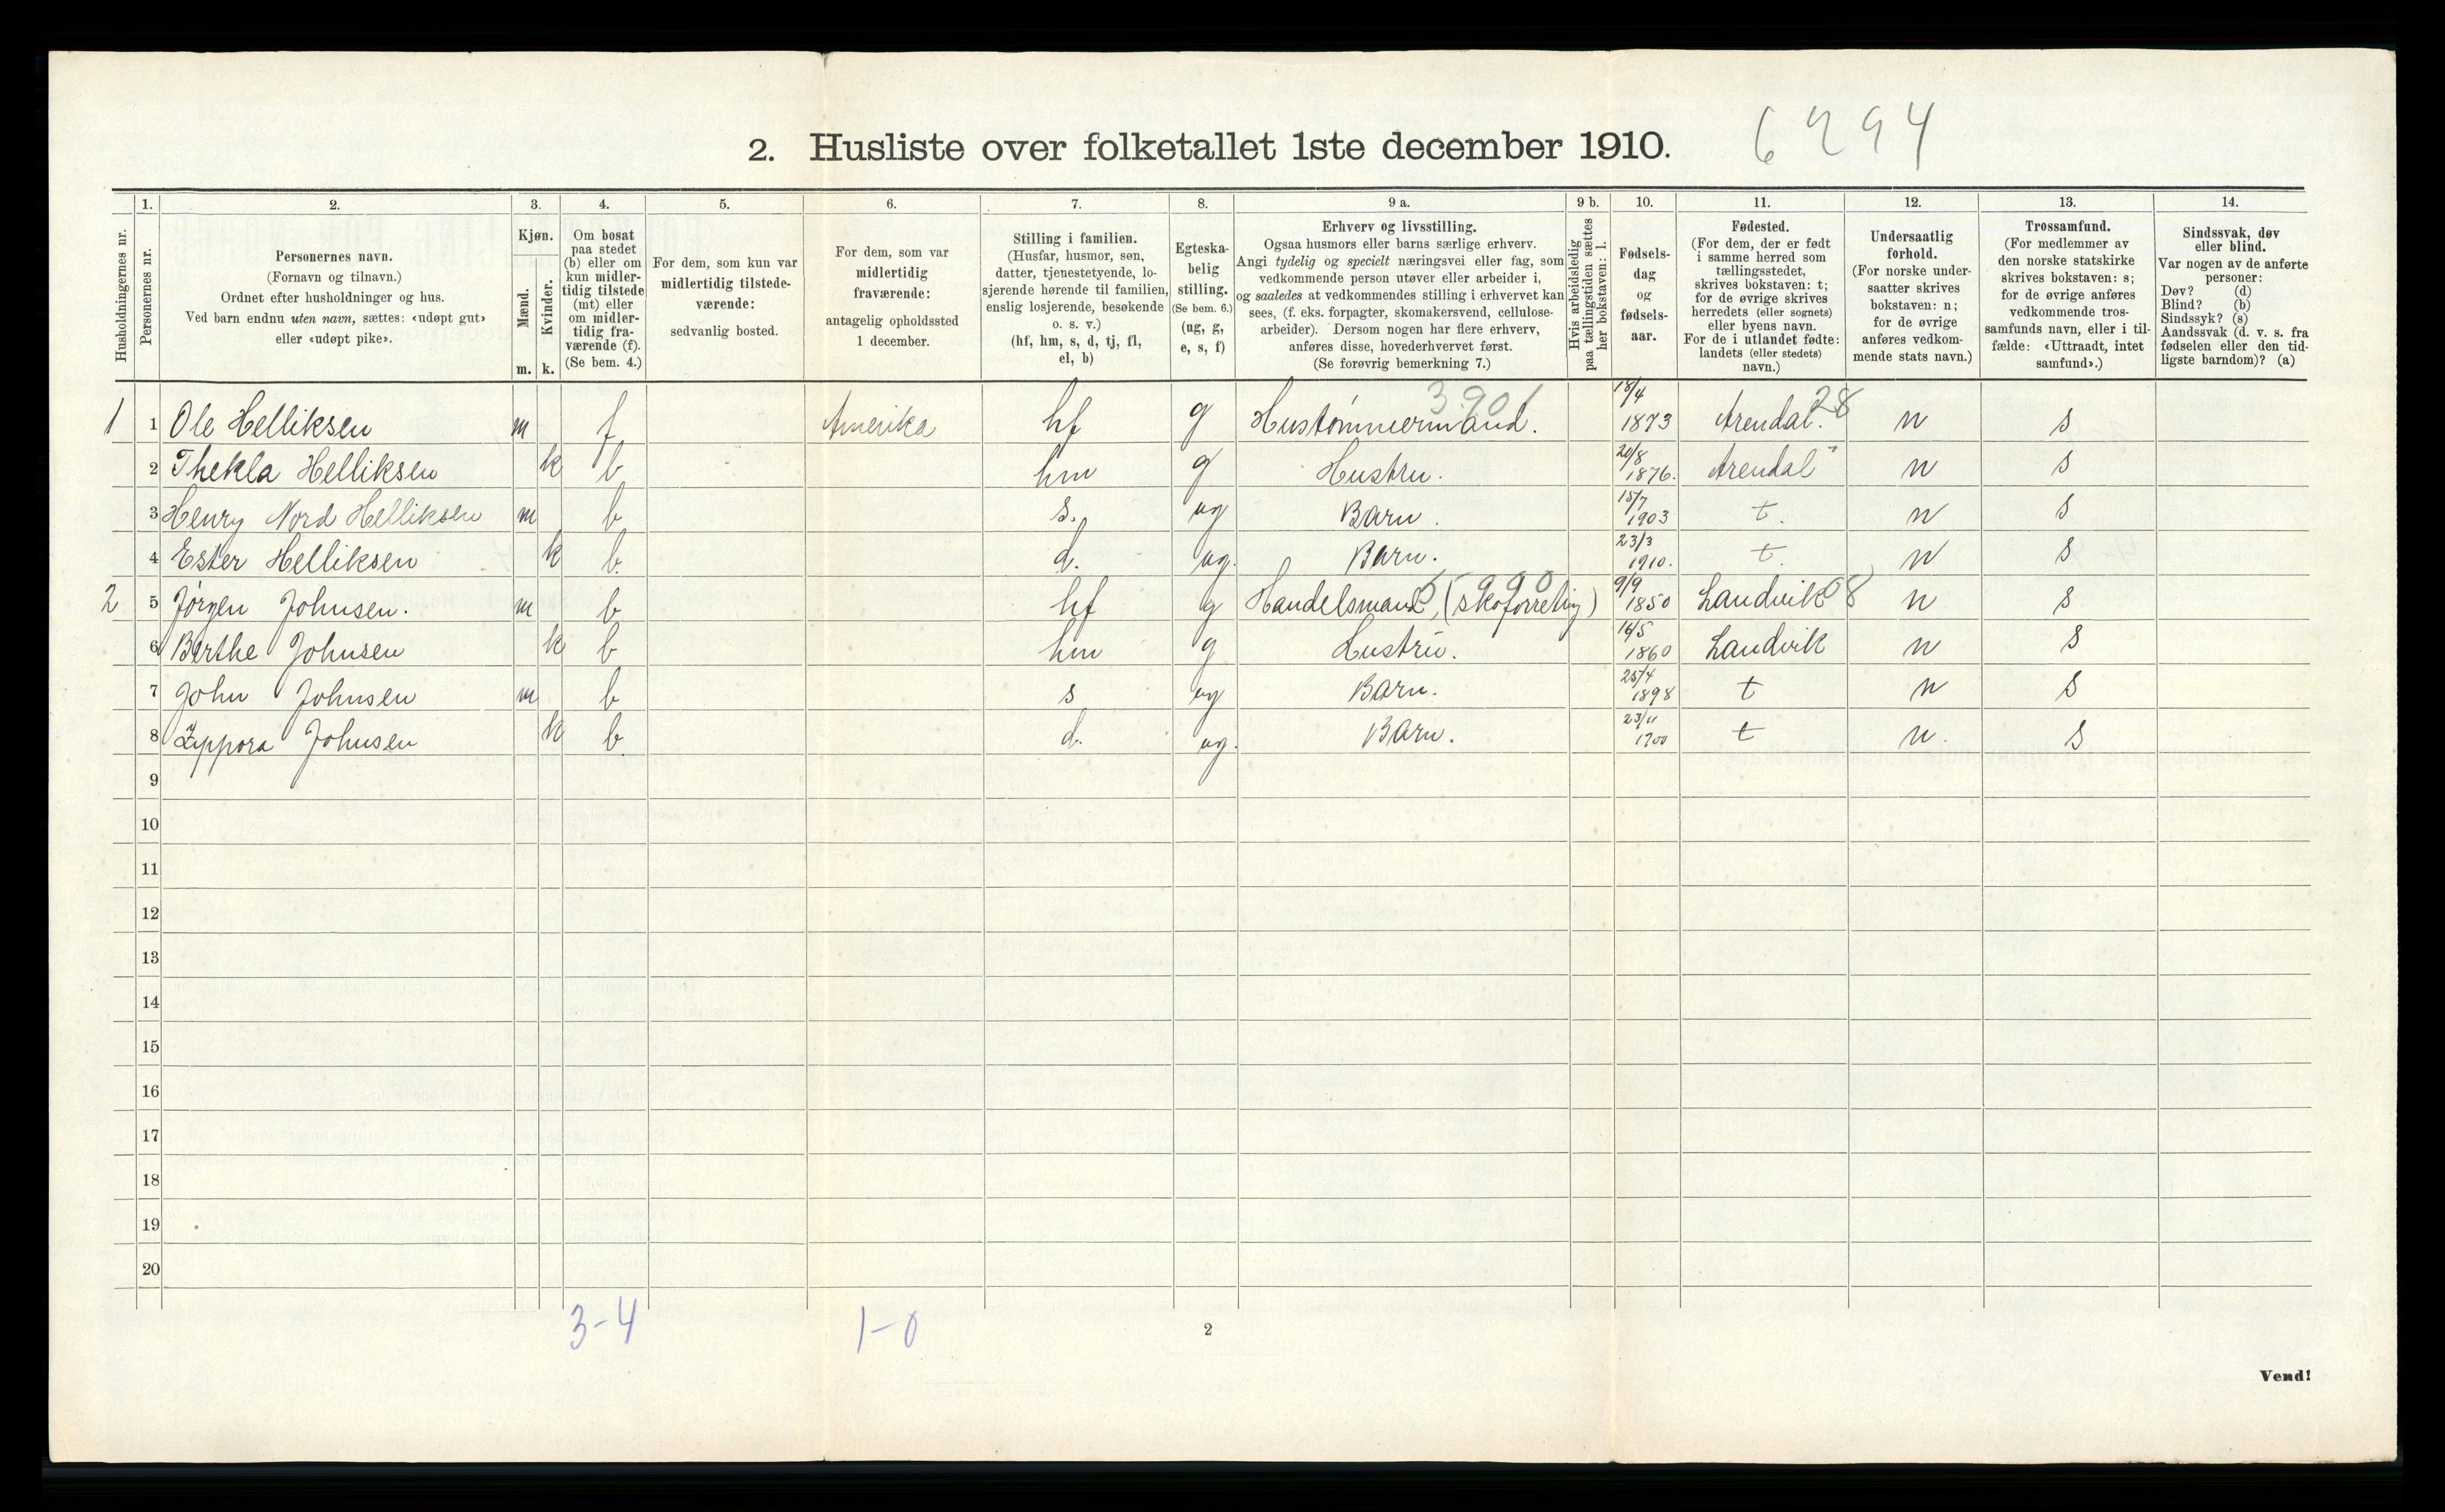 2. Husliste over folketallet 1ste december 1910. 6294
1. 2. 3. 4. 5. 6. 7. 8. 9 a. 9 b. 10. 11. 12. 13. 14.
Husholdningernes nr.
Personernes nr.
Personernes navn.
(Fornavn og tilnavn.)
Ordnet efter husholdninger og hus.
Ved barn endnu uten navn, sættes: «udøpt gut»
eller «udøpt pike».
Kjøn.
Mænd.
Kvinder.
m. k.
Om bosat
paa stedet
(b) eller om
kun midler-
tidig tilstede
(mt) eller
om midler-
tidig fra-
værende (f).
(Se bem. 4.)
For dem, som kun var
midlertidig tilstede-
værende:
sedvanlig bosted.
For dem, som var
midlertidig
fraværende:
antagelig opholdssted
1 december.
Stilling i familien.
(Husfar, husmor, søn,
datter, tjenestetyende, lo-
sjerende hørende til familien,
enslig losjerende, besøkende
o. s. v.)
(hf, hm, s, d, tj, fl,
el, b)
Egteska-
belig
stilling.
(Se bem. 6.)
(ug, g,
e, s, f)
Erhverv og livsstilling.
Ogsaa husmors eller barns særlige erhverv.
Angi tydelig og specielt næringsvei eller fag, som
vedkommende person utøver eller arbeider i,
og saaledes at vedkommendes stilling i erhvervet kan
sees, (f. eks. forpagter, skomakersvend, cellulose-
arbeider). Dersom nogen har flere erhverv,
anføres disse, hovederhvervet først.
(Se forøvrig bemerkning 7.)
Hvis arbeidsledig
paa tællingstiden sættes
her bokstaven: l.
Fødsels-
dag
og
fødsels-
aar.
Fødested.
(For dem, der er født
i samme herred som
tællingsstedet,
skrives bokstaven: t;
for de øvrige skrives
herredets (eller sognets)
eller byens navn.
For de i utlandet fødte:
landets (eller stedets)
navn.)
Undersaatlig
forhold.
(For norske under-
saatter skrives
bokstaven: n;
for de øvrige
anføres vedkom-
mende stats navn.)
Trossamfund.
(For medlemmer av
den norske statskirke
skrives bokstaven: s;
for de øvrige anføres
vedkommende tros-
samfunds navn, eller i til-
fælde: «Uttraadt, intet
samfund».)
Sindssvak, døv
eller blind.
Var nogen av de anførte
personer:
Døv? (d)
Blind? (b)
Sindssyk? (s)
Aandssvak (d. v. s. fra
fødselen eller den tid-
ligste barndom)? (a)
1 1 Ole Helliksen m f Amerika hf g Hustømmermand. 3901 18/4 1873 Arendal. 28 n s
2 Thekla Helliksen k b hm g Hustru. 20/8 1876. Arendal " n s
3 Henry Nord Helliksen m b s. ug Barn. 15/7 1903 t. n s
4 Ester Helliksen k b. d. ug. Barn. 23/3 1910. t. n s
2 5 Jørgen Johnsen. m b hf g Handelsmand, (skoforretnig) 5990 9/9 1850 Landvik 08 n s
6 Berthe Johnsen k b hm g Hustru. 16/5 1860 Landvik n s
7 John Johnsen m b s ug Barn. 25/4 1898 t n s
8 Zippora Johnsen k b d. ug. Barn. 23/11 1900 t n. s
9
10
11
12
13
14
15
16
17
18
19
20
3-4 1-0
2
Vend!